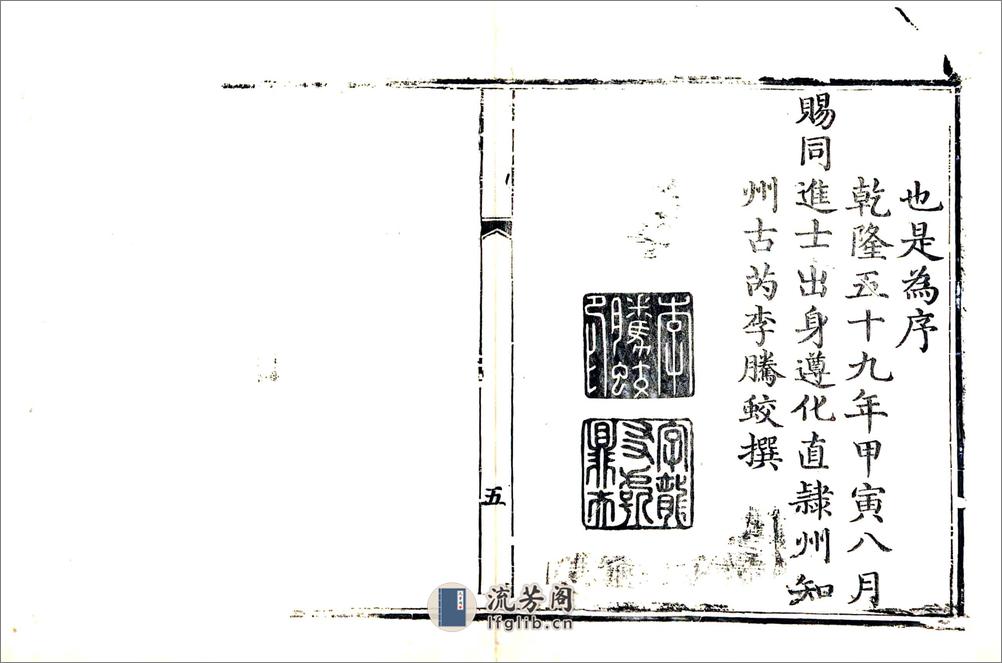 也是為序
乾隆五十九年甲寅八月
賜同進士出身遵化直隸州知
州古芮李騰蛟撰
李騰蛟印
五
流芳阁
lfglib.cn